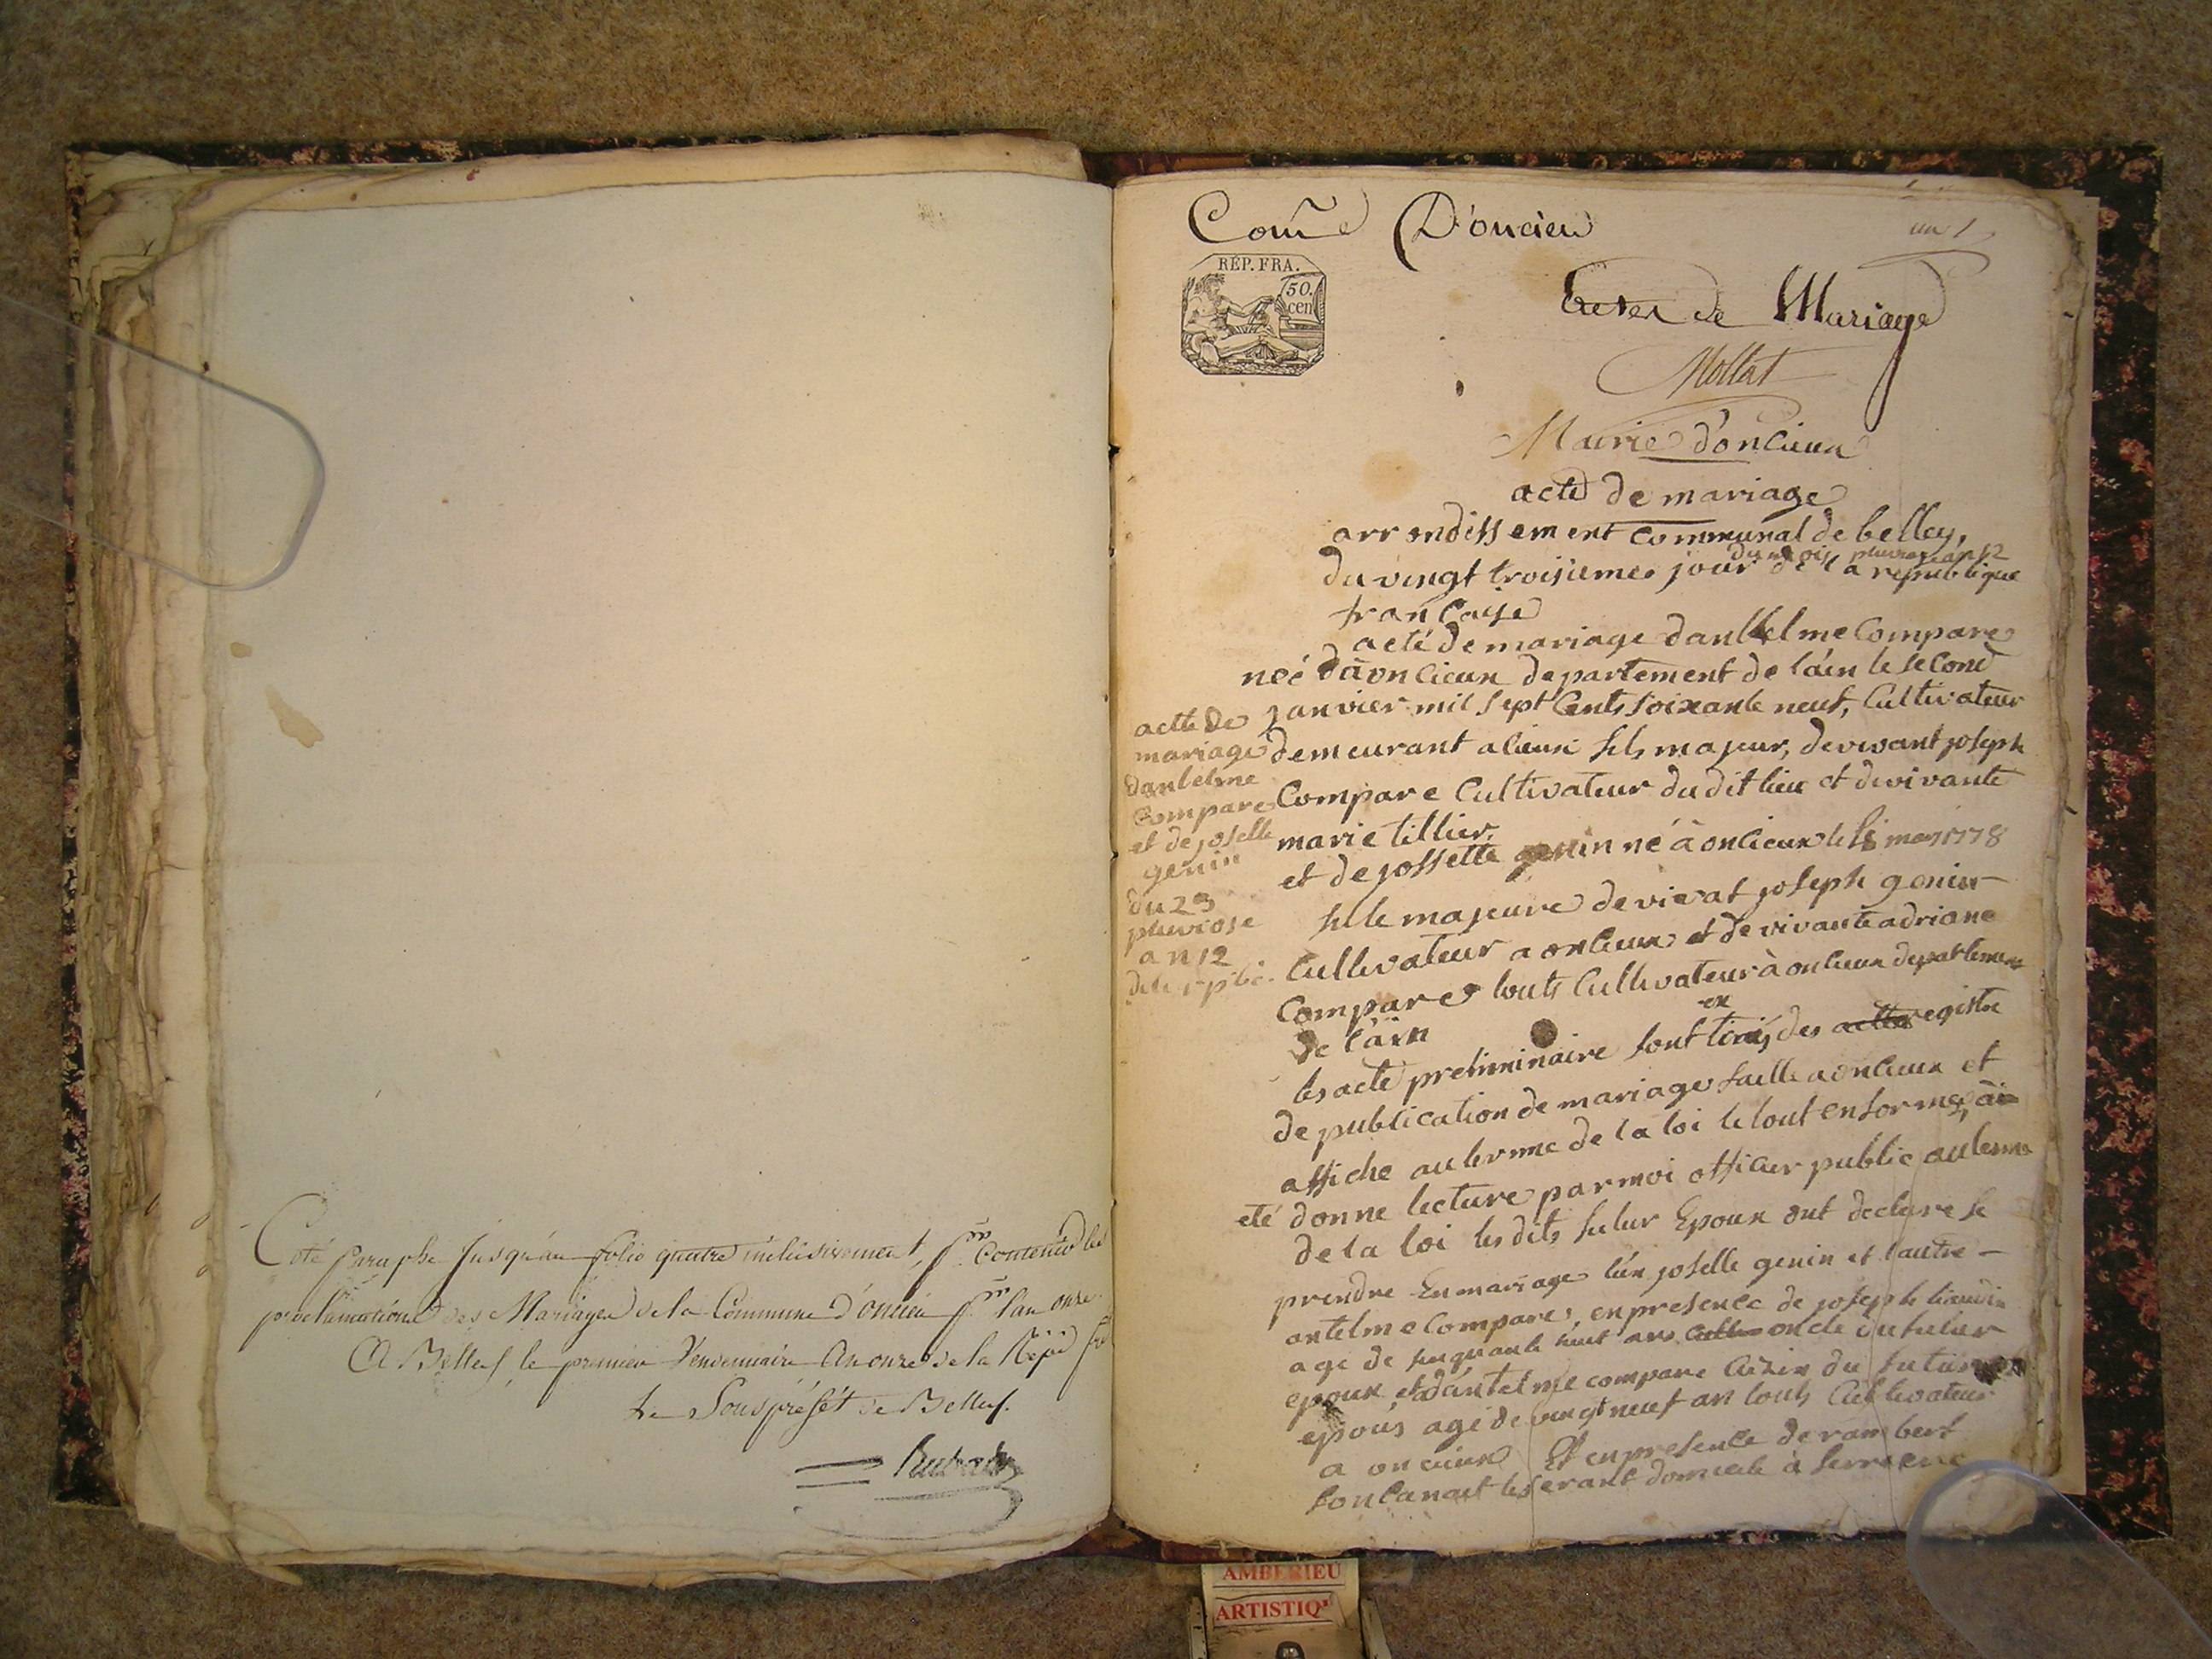 Coté paraphé Jusqu'au folio quatre inclusivement, pr. contenir les
proclamations des Mariages de la Commune d'oncieu pr. l'an onze.
A Belley le premier Vendemiaire An onze de la Rép.
Le Souspréfét de Belley.
Come D'oncieu
un 1
RÉP. FRA.
50.
cen
Actes de Mariage
Mollat
Mairie d'oncieux
acte de mariage
arrondissement communal de belley,
du mois pluviose an 12
du vingt troisieme jour de la republique
francaise
acté de mariage danthelme Compare
neé à oncieux departement de láin le second
janvier mil sept Cents soixante neuf, Cultivateur
demeurant a lieux fils majeur, de vivant joseph
Compare Cultivateur du dit lieu et de vivante
marie tillier,
et de jossette genin né à oncieux le mars 1778
file majeure de vivat joseph genin
Cultivateur a oncieux et de vivante adriane
Compare touts Cultivateur à oncieux departement
de láin
les acte preliminaire sont tirés des acttes registre
ex
de publication de mariage faitte a oncieux et
affiche au terme de la loi le tout en forme, à
eté donne lecture par moi officier public au terme
de la loi les dits futur Epoux ont declare se
prendre En mariage lún joselle genin et lautre
antelme Compare, en presence de joseph
age de sinquante huit ans oncle du futur
epoux et dántelme compare Cuzin du futur
epous agé de vingt neuf an touts Cultivateur
a oncieux Et en presence de rambert
domicile à
acte de
mariage
dantelme
Compare
et de joselle
genin
du 23
pluviose
an 12
de la rpbe.
AMBERIEU
ARTISTIQ